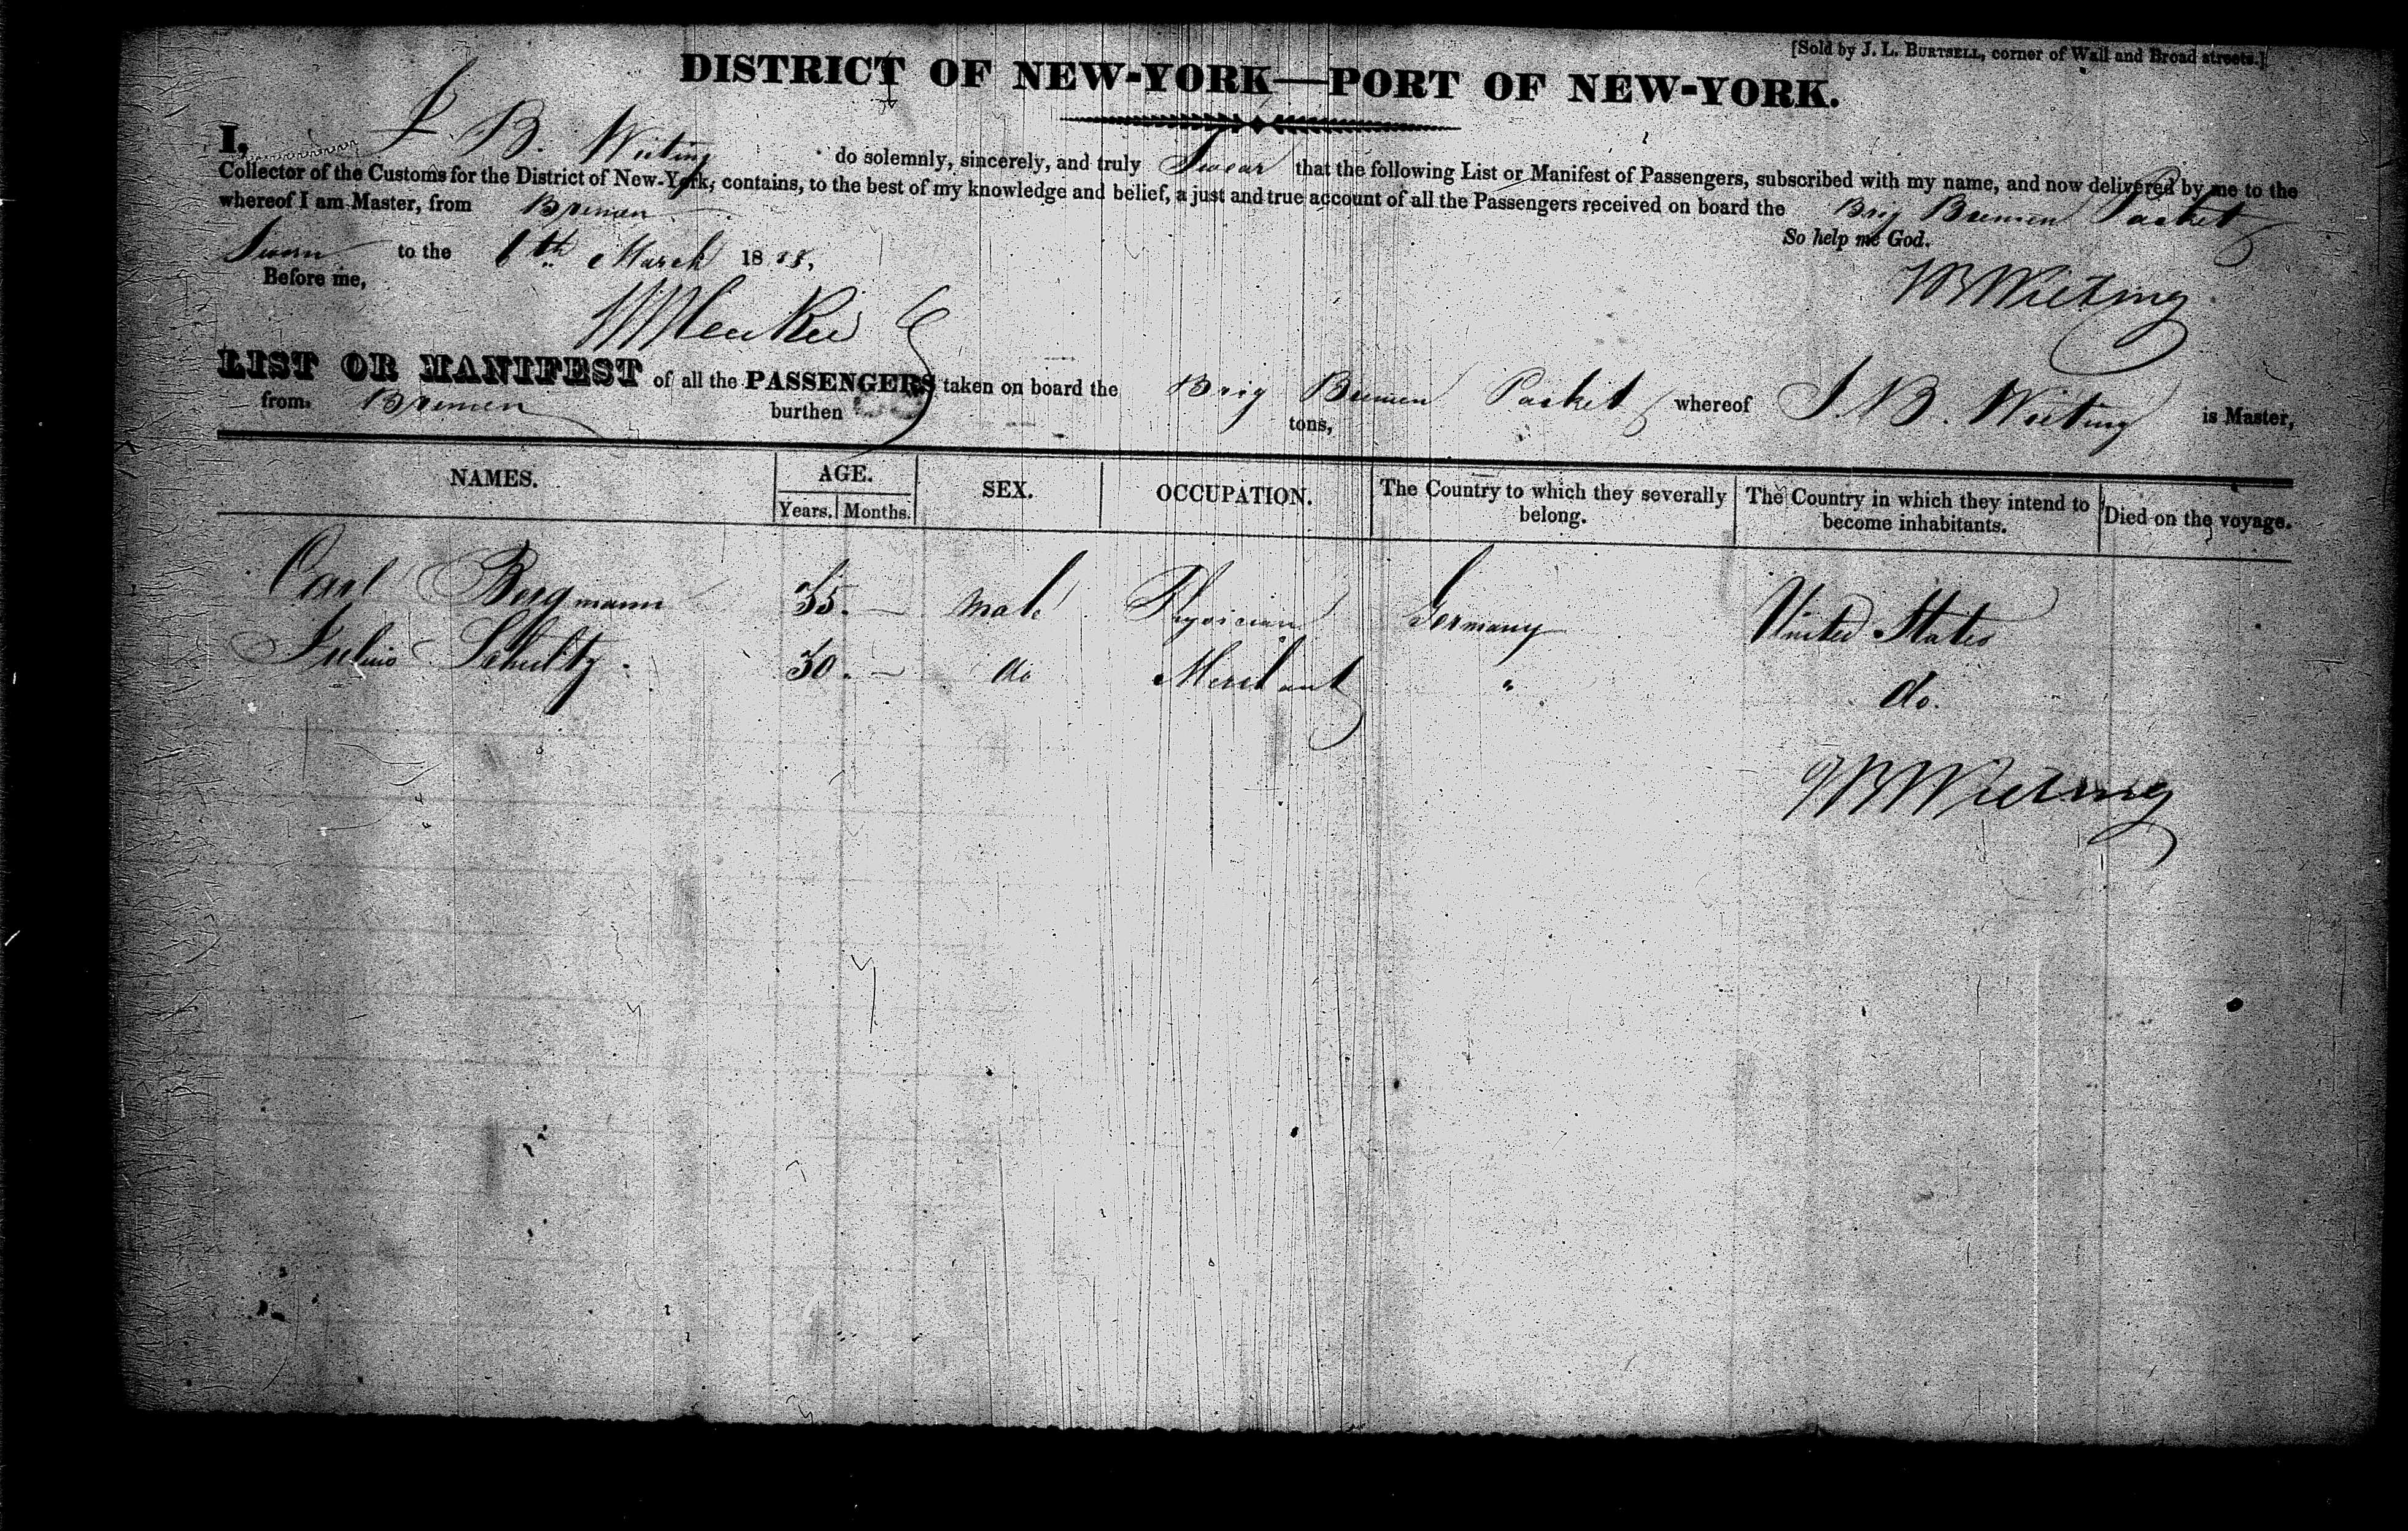 [Sold by J. L. BURTSELL, corner of Wall and Broad streets.]
DISTRICT OF NEW-YORK—PORT OF NEW-YORK.
I, J. B. Wieting do solemnly, sincerely, and truly Swear that the following List or Manifest of Passengers, subscribed with my name, and now delivered by me to the
Collector of the Customs for the District of New-York, contains, to the best of my knowledge and belief, a just and true account of all the Passengers received on board the Brig Bremen Packet
whereof I am Master, from Bremen
So help me God.
Sworn to the th March 18
Before me,
JB Wieting
LIST OR MANIFEST of all the PASSENGERS taken on board the Brig Bremen Packet whereof J. B. Wieting is Master,
from Bremen burthen tons,
NAMES. AGE. SEX. OCCUPATION. The Country to which they severally belong. The Country in which they intend to become inhabitants. Died on the voyage.
Years. Months.
Carl Bergmann 35. — male Physician Germany United States
Julius Schultz. 30. — do Merchant " do.
JB Wieting